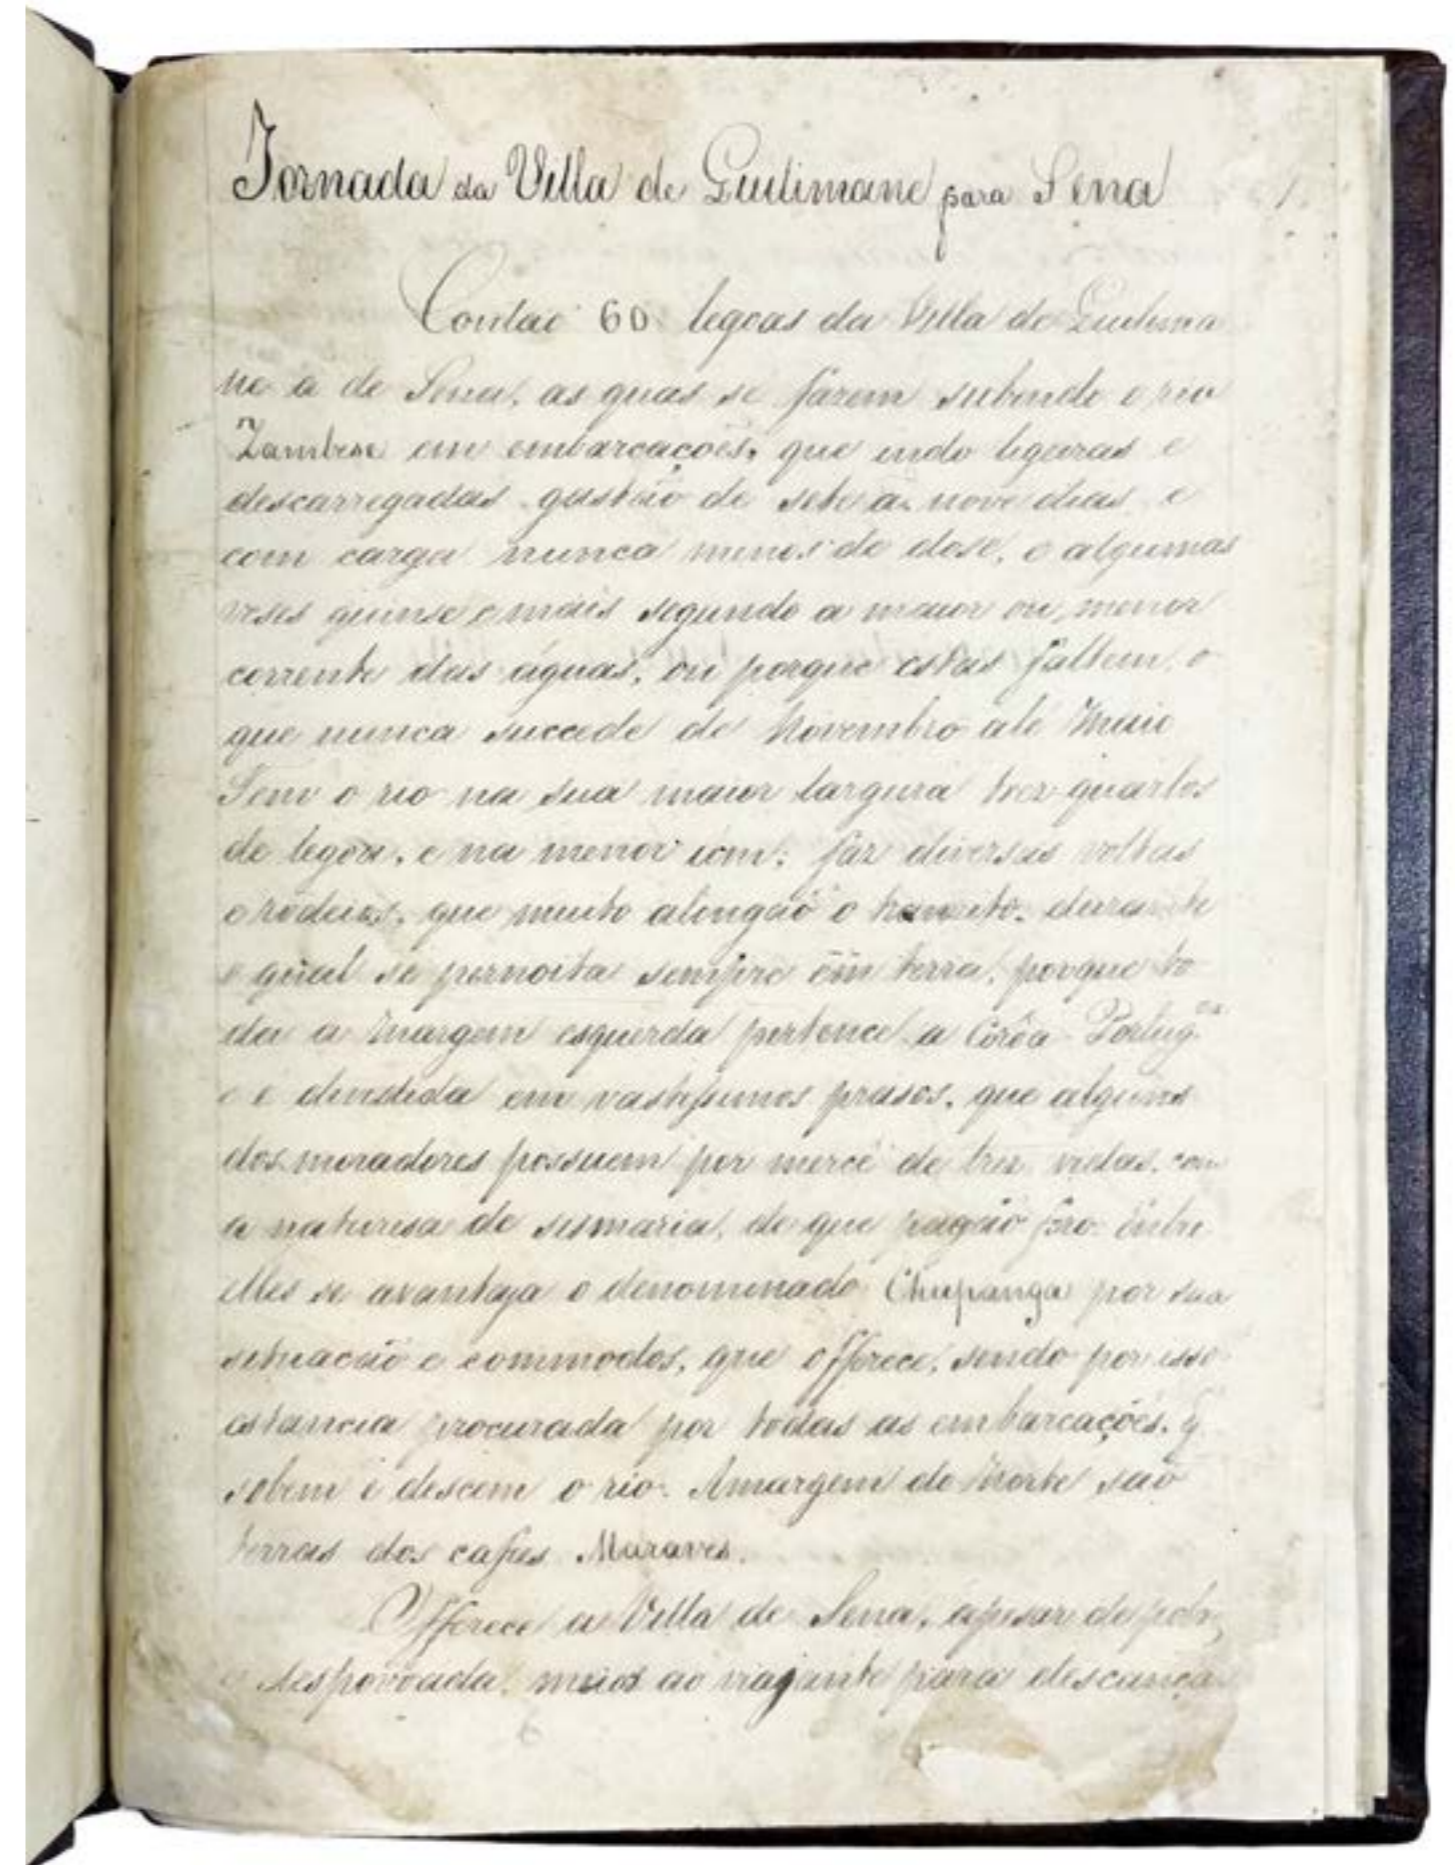 Jornada da Villa de Quilimane para Sena
1
Contão 60 legoas da Villa de Quilima
ne a de Sena, as quaes se fazem subindo o rio
Zambese em embarcações, que indo ligeiras e
descarregadas gastão de sete a nove dias e
com carga nunca menos de dose, e algumas
veses quinse e mais segundo a maior ou menor
corrente das águas, ou porque estas faltem, o
que nunca succede de Novembro até Maio
Tem o rio na sua maior largura trez quartos
de legoa, e na menor hum; faz diversas voltas
e rodeios, que muito alongão o transito, durante
o qual se pernoita sempre em terra, porque to
da a margem esquerda pertence a Corôa Portug.za
e é dividida em vastissimos prasos, que alguns
dos moradores possuem por mercê de trez vidas, com
a naturesa de sesmaria, de que pagão fôro. Entre
elles se avantaja o denominado Chupanga por sua
situacão e commodos, que offerece, sendo por isso
estancia procurada por todas as embarcações, q
sobem e descem o rio. A margem do Norte são
terras dos cafres Maraves.
Offerece a Villa de Sena, apesar de pobre
e despovoada, meios ao viajante para descança